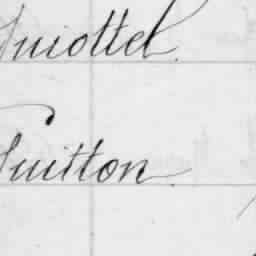 Guiottel
Guitton